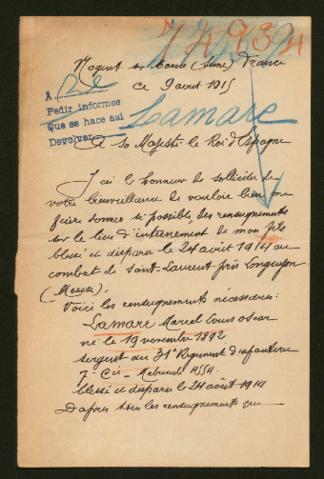 74932
Nogent sur Marne (Seine) France
Ce 9 avril 1915
A
Pedir informes
Que se hace asi
Devolver
Lamare
A sa Majesté le Roi d'Espagne
J'ai l'honneur de solliciter de
votre bienveillance de vouloir bien me
faire donner si possible, des renseignements
sur le lieu d'internement de mon fils
blessé et disparu le 24 août 1914 au
combat de Saint-Laurent près Longuyon
(Meuse).
Voici les renseignements nécessaires:
Lamare Marcel Louis Oscar
né le 19 novembre 1892
sergent au 31e Regiment d'infanterie
7e Cie - Matricule 4554
blessé et disparu le 24 août 1914
D'après tous les renseignements que